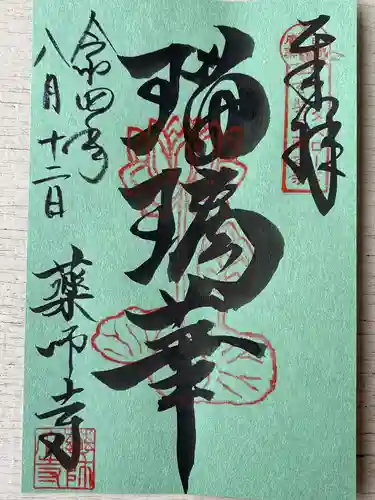 奉拝
瑠璃華
令和四年
八月十二日
薬師寺